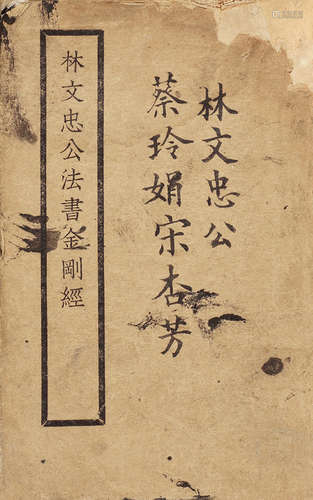 林文忠公
蔡玲娟宋杏芳
林文忠公法書金剛經